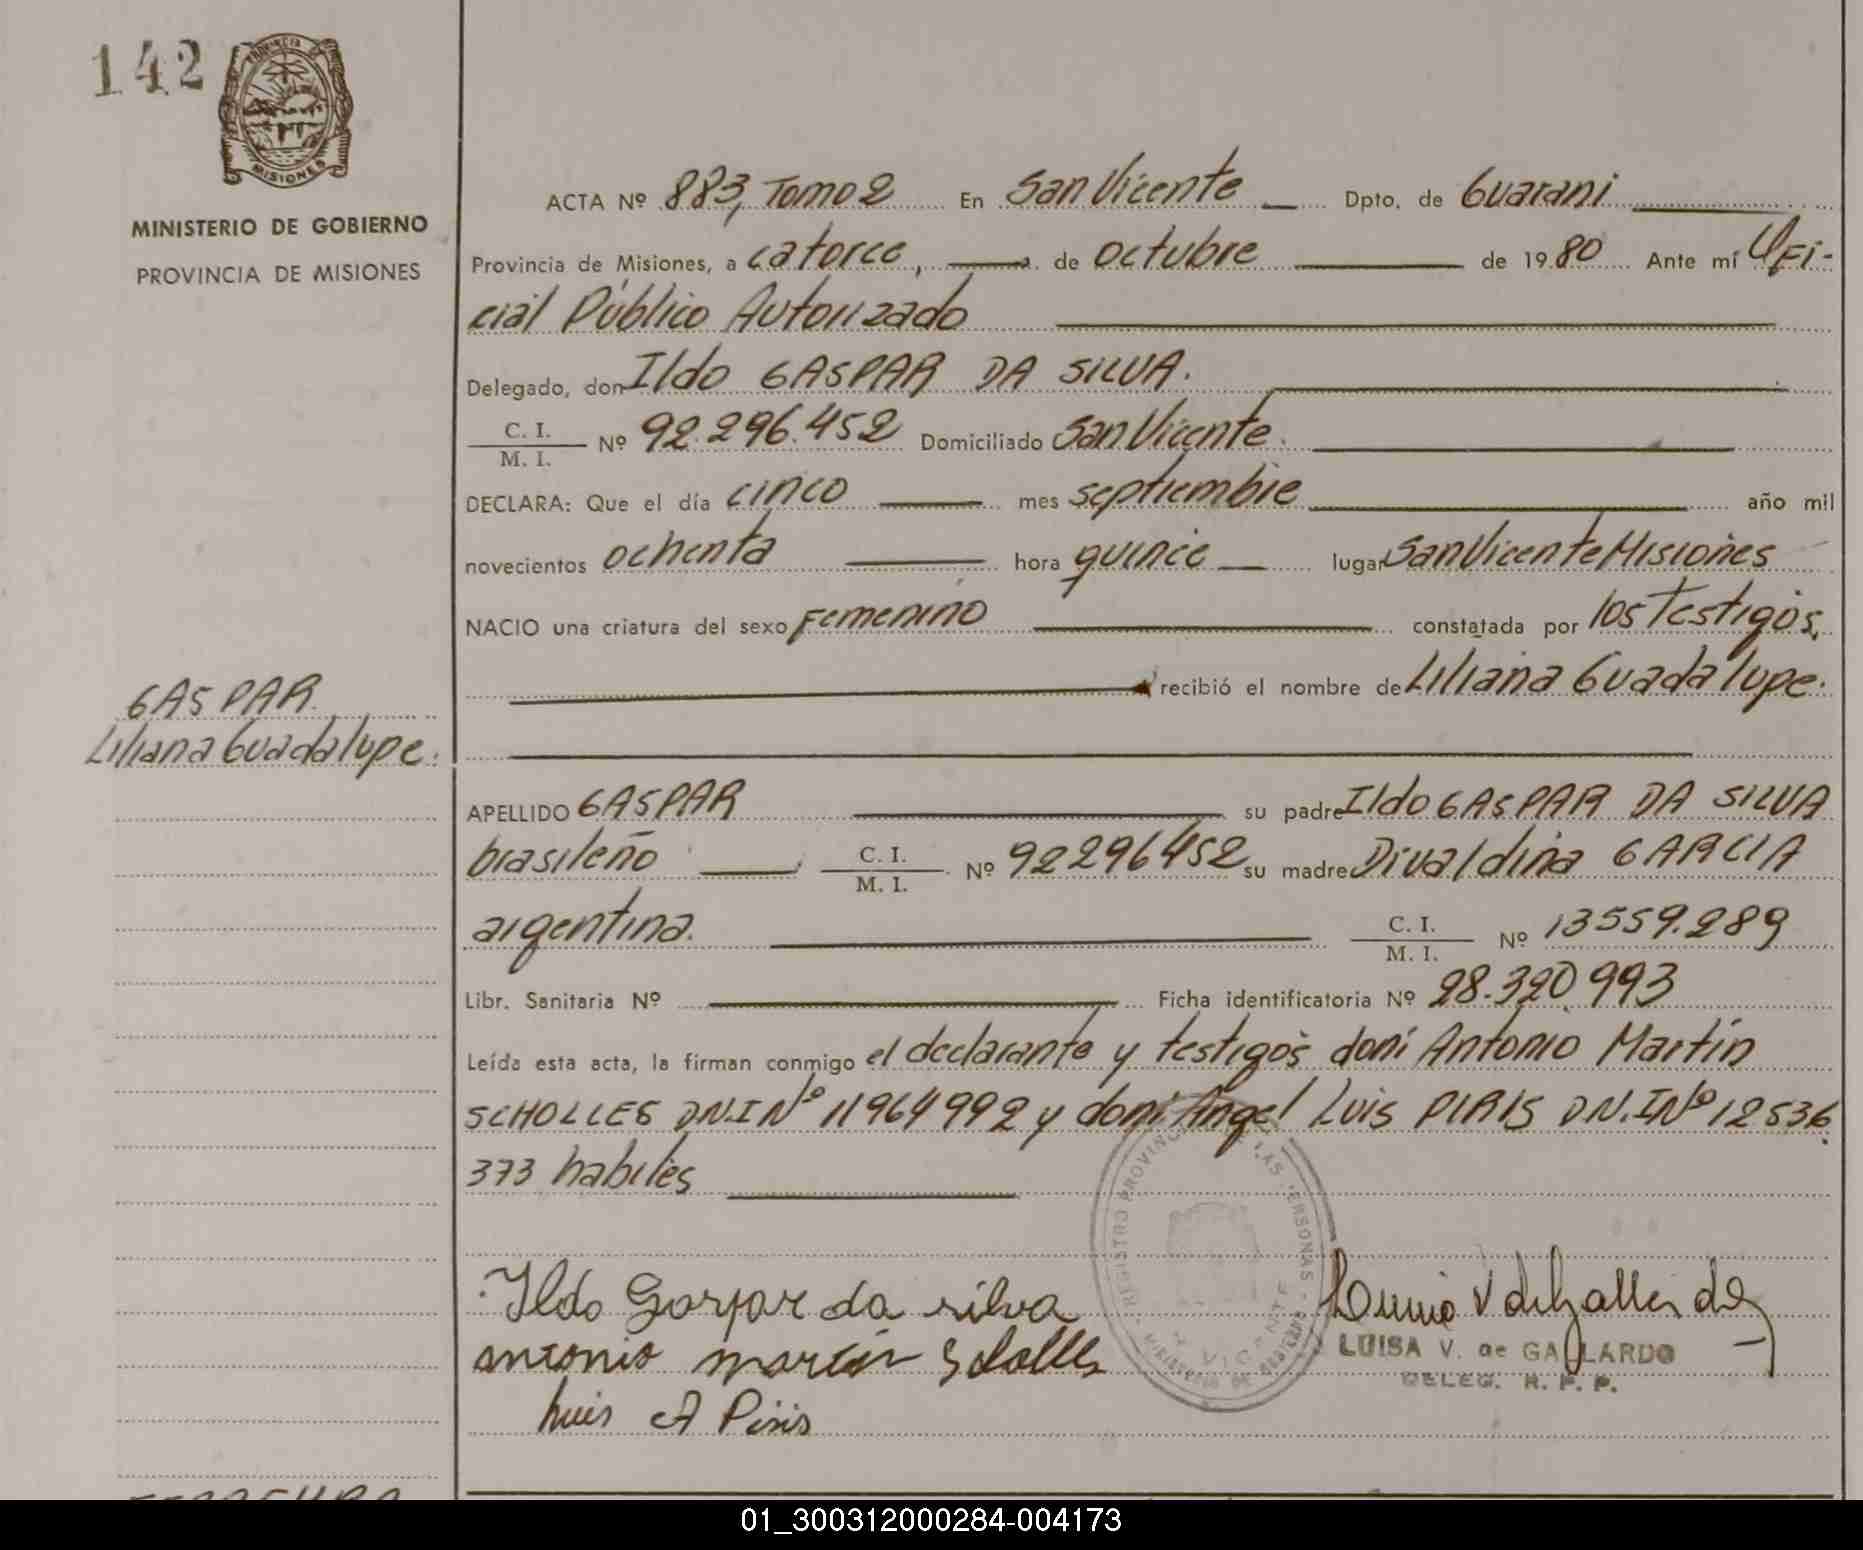 142
PROVINCIA
MISIONES
MINISTERIO DE GOBIERNO
PROVINCIA DE MISIONES
ACTA Nº 883, Tomo 2 En San Vicente Dpto. de Guarani
Provincia de Misiones, a catorce, de octubre de 1980 Ante mí Ofi-
cial Público Autorizado
Delegado, don Ildo GASPAR DA SILVA.
C. I.
M. I. Nº 92.296.452 Domiciliado San Vicente.
DECLARA: Que el día cinco mes septiembre año mil
novecientos ochenta hora quince lugar San Vicente Misiones
NACIO una criatura del sexo Femenino constatada por los Testigos,
recibió el nombre de Liliana Guadalupe.
GASPAR
Liliana Guadalupe.
APELLIDO GASPAR su padre Ildo GASPAR DA SILVA
brasileño C. I. M. I. Nº 92296452 su madre Divaldina GARCIA
argentina. C. I. M. I. Nº 13559.289
Libr. Sanitaria Nº Ficha identificatoria Nº 28.320.993
Leída esta acta, la firman conmigo el declarante y testigos don: Antonio Martin
SCHOLLES DN.I Nº 11964992 y don: Angel Luis PIRIS DN.I Nº 12536
373 habiles
REGISTRO PROVINCIAL LAS PERSONAS
Ildo Gaspar da silva
antonio martin Scholles
LUISA V. de GALLARDO
DELEG. R. P. P.
Luis A Piris
01_300312000284-004173